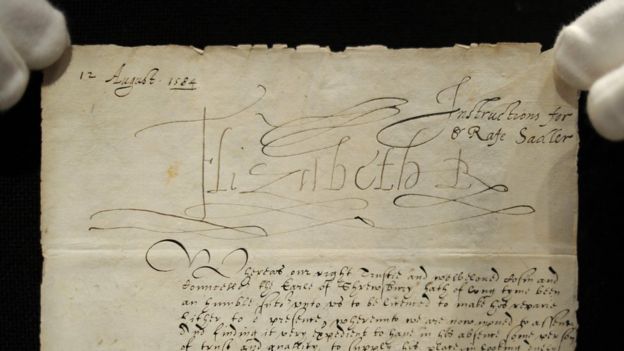 12 August. 1584
Instructions for
Rafe Sadler
Elizabeth R
Whereas our right trustie and welbeloved Cosin and
the Earle of Shrewsbury hath of long tyme been
an humble unto us to be licenced to make his repaire
hither to presence, whereunto we are now moved to assent
And finding it very expedient to have in his absence some person
of trust and quallity to supply his place in